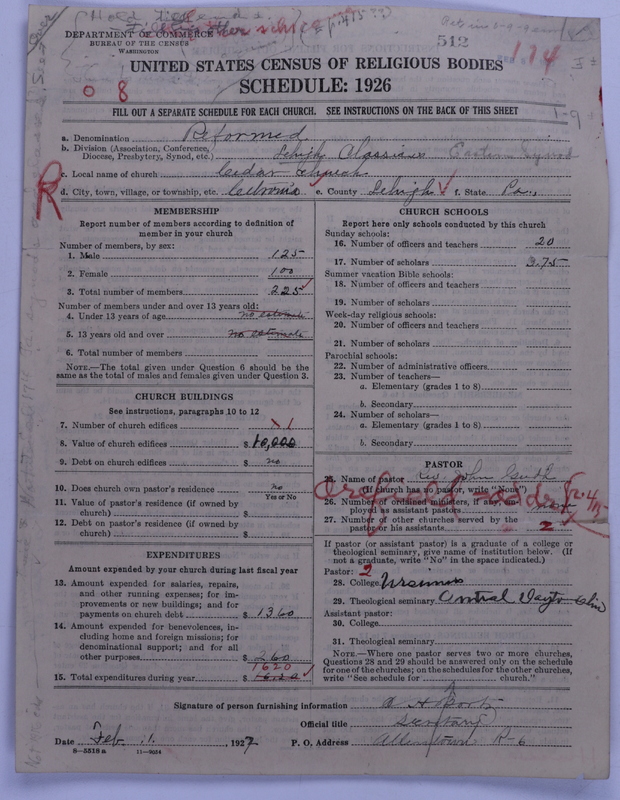 512
114
DEPARTMENT OF COMMERCE
BUREAU OF THE CENSUS
WASHINGTON
UNITED STATES CENSUS OF RELIGIOUS BODIES
SCHEDULE: 1926
0 8
FILL OUT A SEPARATE SCHEDULE FOR EACH CHURCH. SEE INSTRUCTIONS ON THE BACK OF THIS SHEET
1-9
a. Denomination Reformed
b. Division (Association, Conference, Diocese, Presbytery, Synod, etc.) Lehigh Classis Eastern Synod
c. Local name of church Cedar Church
d. City, town, village, or township, etc. e. County Lehigh f. State Pa.,
R
MEMBERSHIP
Report number of members according to definition of member in your church
Number of members, by sex:
1. Male 125
2. Female 100
3. Total number of members 225
Number of members under and over 13 years old:
4. Under 13 years of age no estimate
5. 13 years old and over no estimate
6. Total number of members
NOTE.—The total given under Question 6 should be the same as the total of males and females given under Question 3.
CHURCH BUILDINGS
See instructions, paragraphs 10 to 12
7. Number of church edifices 1
8. Value of church edifices $ 10,000
9. Debt on church edifices $ no
10. Does church own pastor's residence no
Yes or No
11. Value of pastor's residence (if owned by church) $
12. Debt on pastor's residence (if owned by church) $
EXPENDITURES
Amount expended by your church during last fiscal year
13. Amount expended for salaries, repairs, and other running expenses; for improvements or new buildings; and for payments on church debt $ 1360
14. Amount expended for benevolences, including home and foreign missions; for denominational support; and for all other purposes $ 260
1620
15. Total expenditures during year $
CHURCH SCHOOLS
Report here only schools conducted by this church
Sunday schools:
16. Number of officers and teachers 20
17. Number of scholars 375
Summer vacation Bible schools:
18. Number of officers and teachers
19. Number of scholars
Week-day religious schools:
20. Number of officers and teachers
21. Number of scholars
Parochial schools:
22. Number of administrative officers
23. Number of teachers—
a. Elementary (grades 1 to 8)
b. Secondary
24. Number of scholars—
a. Elementary (grades 1 to 8)
b. Secondary
PASTOR
25. Name of pastor Rev John Guth
(If church has no pastor, write "None")
26. Number of ordained ministers, if any, employed as assistant pastor
27. Number of other churches served by the pastor or his assistants 2
If pastor (or assistant pastor) is a graduate of a college or theological seminary, give name of institution below. (If not a graduate, write "No" in the space indicated.)
Pastor: 2
28. College Ursinus
29. Theological seminary Central Dayton Ohio
Assistant pastor:
30. College
31. Theological seminary
NOTE.—Where one pastor serves two or more churches, Questions 28 and 29 should be answered only on the schedule for one of the churches; on the schedules for the other churches, write "See schedule for church."
Signature of person furnishing information
Official title Secretary
Date Feb. 11, 1927 P. O. Address Allentown R-6
8-5518 a 11-9654